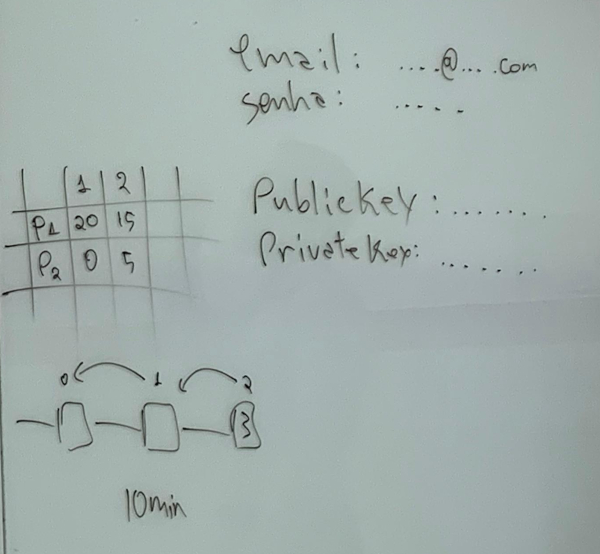 email: ....@... .com
senha: .....
1 2
P1 20 15
P2 0 5
PublicKey: ........
PrivateKey: ......
0 1 2
3
10min